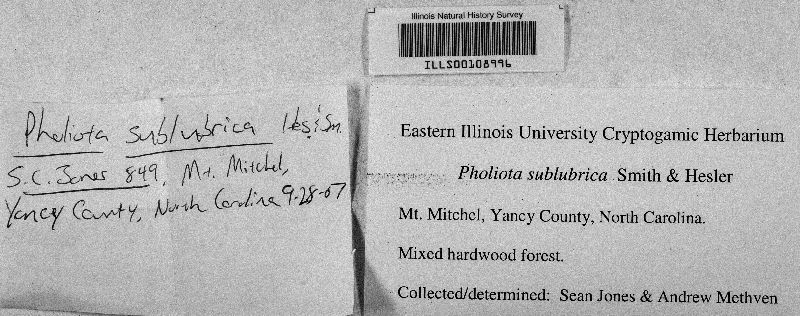 Illinois Natural History Survey
ILLS00108996
Pholiota sublubrica Hes; Sm.
S.C. Jones 849, Mt. Mitchel,
Yancy County, North Carolina 9-28-07
Eastern Illinois University Cryptogamic Herbarium
Pholiota sublubrica Smith & Hesler
Mt. Mitchel, Yancy County, North Carolina.
Mixed hardwood forest.
Collected/determined: Sean Jones & Andrew Methven